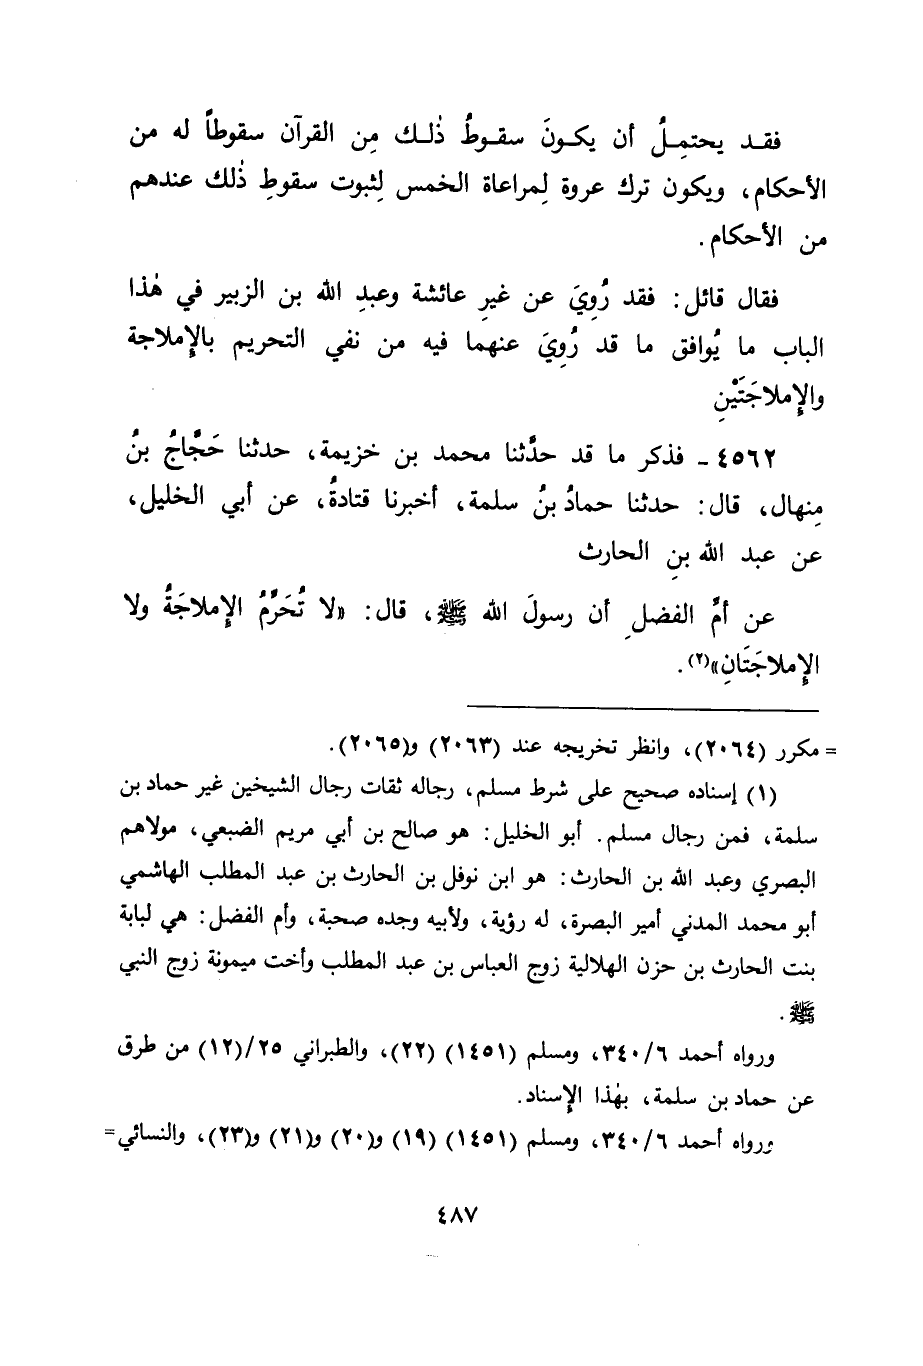 فقـد يحتمِـلُ أن يكـونَ سقـوطُ ذٰلـك مِن القرآن سقوطاً له من
الأحكام، ويكون ترك عروة لِمراعاة الخمس لِثبوت سقوطِ ذٰلك عندهم
من الأحكام.
فقال قائل: فقد رُوِيَ عن غيرِ عائشة وعبدِ الله بن الزبير في هٰذا
الباب ما يُوافق ما قد رُوِيَ عنهما فيه من نفي التحريم بالإِملاجة
والإِملاجَتَيْنِ
٤٥٦٢ ـ فذكر ما قد حدَّثنا محمد بن خزيمة، حدثنا حَجَّاجُ بنُ
مِنهال، قال: حدثنا حمادُ بنُ سلمة، أخبرنا قتادةُ، عن أبي الخليل،
عن عبد الله بنِ الحارث
عن أمِّ الفضلِ أن رسولَ الله ﷺ، قال: «لا تُحَرِّمُ الإِملاجَةُ ولا
الإِملاجَتَانِ»(٢).
= مكرر (٢٠٦٤)، وانظر تخريجه عند (٢٠٦٣) و(٢٠٦٥).
(١) إسناده صحيح على شرط مسلم، رجاله ثقات رجال الشيخين غير حماد بن
سلمة، فمن رجال مسلم. أبو الخليل: هو صالح بن أبي مريم الضبعي، مولاهم
البصري وعبد الله بن الحارث: هو ابن نوفل بن الحارث بن عبد المطلب الهاشمي
أبو محمد المدني أمير البصرة، له رؤية، ولأبيه وجده صحبة، وأم الفضل: هي لبابة
بنت الحارث بن حزن الهلالية زوج العباس بن عبد المطلب وأخت ميمونة زوج النبي
ﷺ.
ورواه أحمد ٣٤٠/٦، ومسلم (١٤٥١) (٢٢)، والطبراني ٢٥/(١٢) من طرق
عن حماد بن سلمة، بهٰذا الإِسناد.
ورواه أحمد ٣٤٠/٦، ومسلم (١٤٥١) (١٩) و(٢٠) و(٢١) و(٢٣)، والنسائي =
٤٨٧